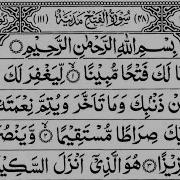 (۴۸) سُوْرَةُ الْفَتْحِ مَدَنِيَّةٌ (۱۱۱)
بِسْمِ اللهِ الرَّحْمٰنِ الرَّحِيْمِ
لَكَ فَتْحًا مُّبِيْنًا ۝ لِّيَغْفِرَ لَكَ
مِنْ ذَنْۢبِكَ وَمَا تَاَخَّرَ وَيُتِمَّ نِعْمَتَهٗ
كَ صِرَاطًا مُّسْتَقِيْمًا ۝ وَّيَنْصُ
زًا ۝ هُوَ الَّذِيْۤ اَنْزَلَ السَّكِيْ